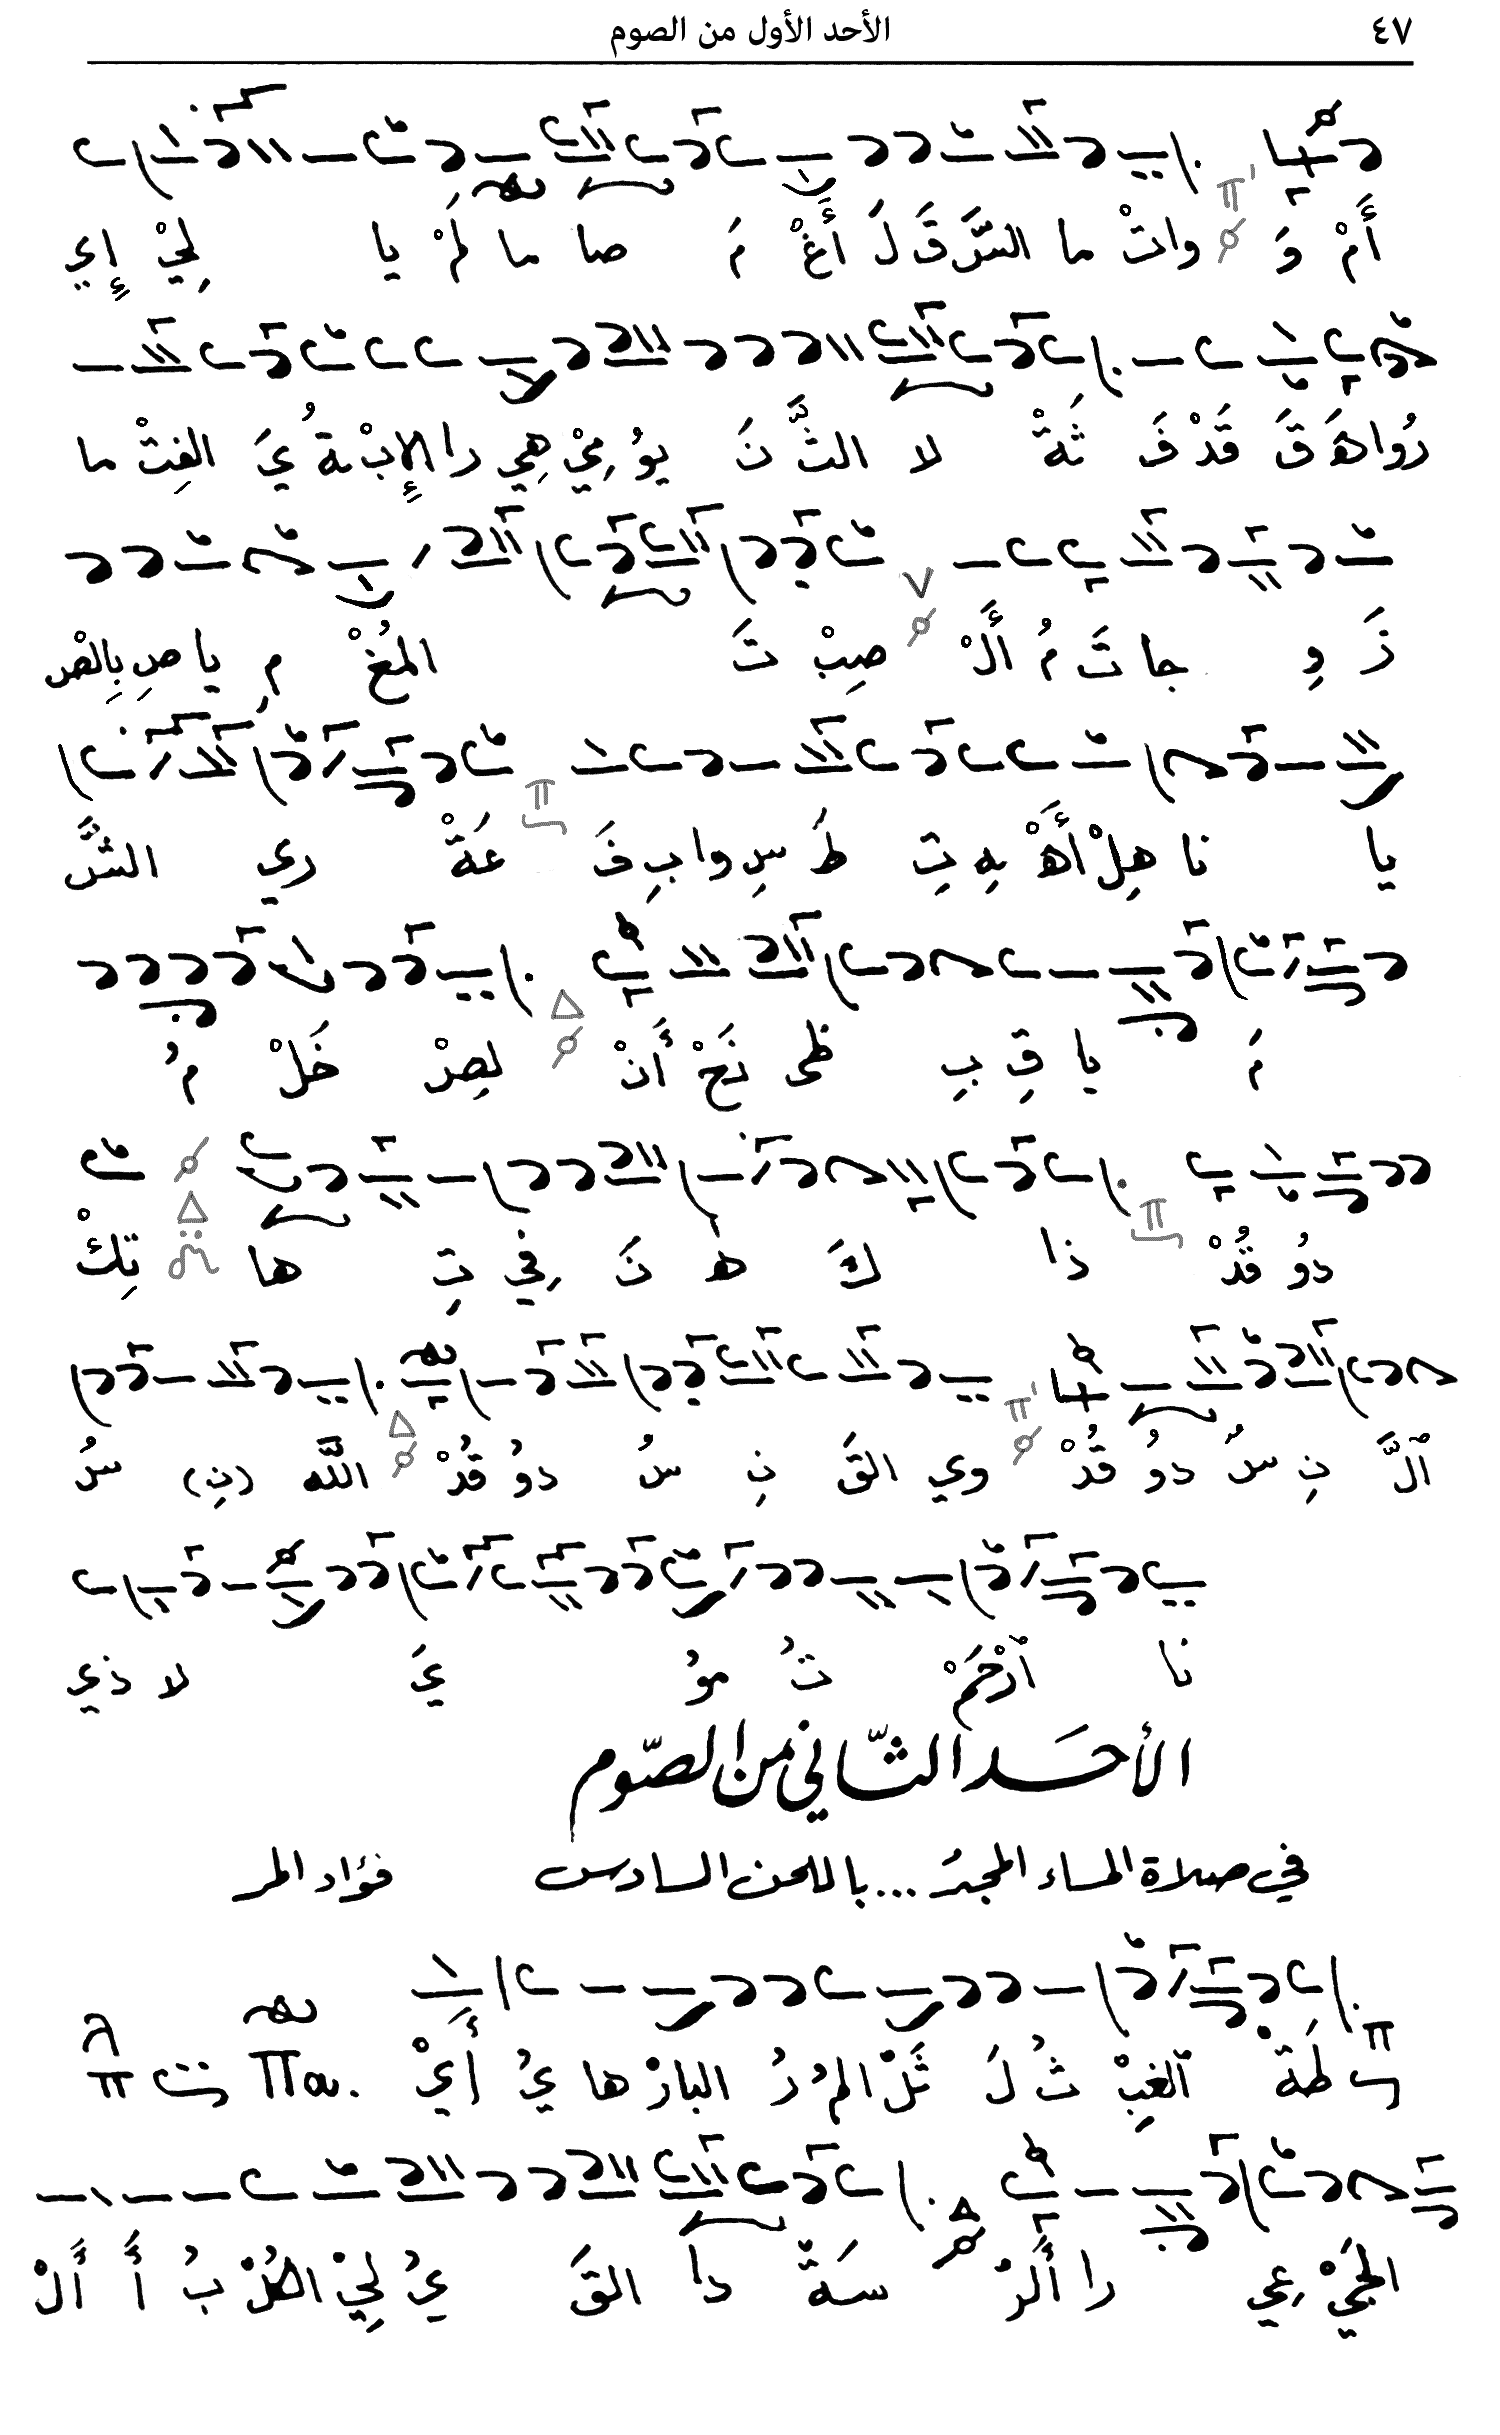 ٤٧ الأحد الأول من الصوم
أَمْ وَ واتْ ما السَّرَ قَ لَ أَغْ مَ صا ما لَمْ يا لِيْ إِي
دُوا هَ قَ قَدْ فَ ثَةْ لا الثَّ نَ يو مِيْ هِي دا الإِبْ نَةُ يَ الفِتْ ما
زَ وِ جا تَ مُ أَلْ صِبْ تَ المُغْ مِ يا صِ بِالصْ
يا نا هِلْ أَهْ بِهِ تِ طَ سِ وا بِ فَ عَةْ ري الشَّ
مَ يا قِ بِ ظى نَحْ أَنْ لِصِرْ خَلْ مُ
دو قُدْ ذا كَ هَ نَ في تِ ها تِكْ
اَلَّ نِ سُ دو قُدْ وي القَ نِ سُ دو قُدْ الله (نِ) سُ
نا اَرْحَمْ تُ مو يَ لا ذي
الأحَد الثّاني من الصّوم
في صلاة المساء ... باللحن السادس فؤاد المر
طَةْ اَلغِبْ ثُ لَ ثَلْ المُ رُ البارْ ها يُ أَيْ
الجَيْ عي را أَلرْ سَةْ دا القَ يُ لِيْ الكُلْ بُ أَ أَلْ